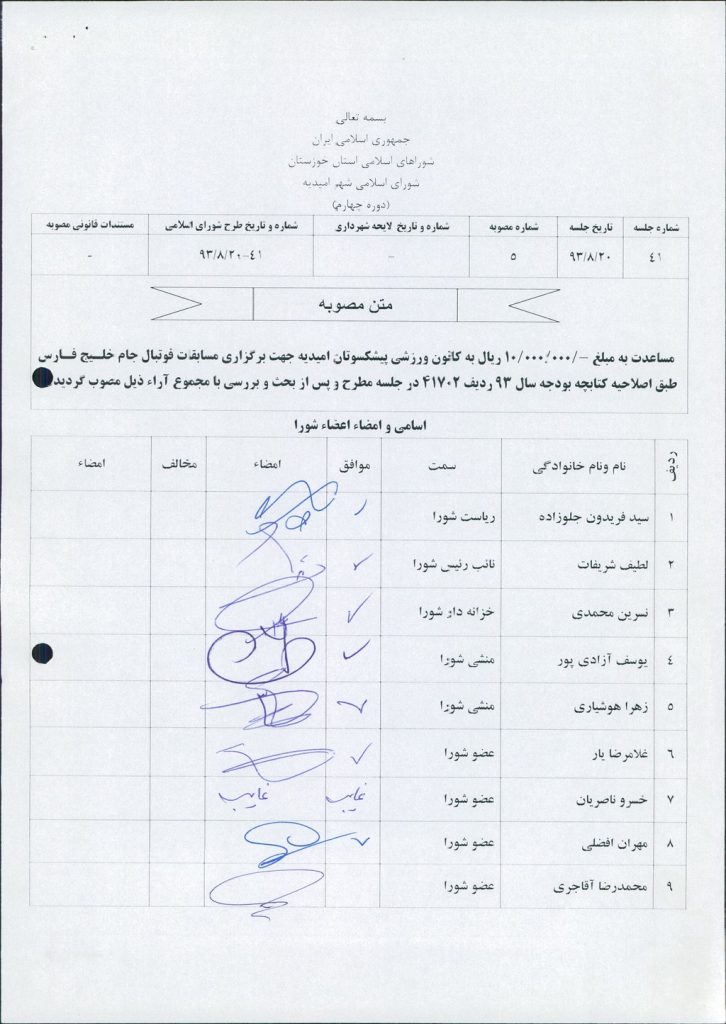 بسمه تعالی
جمهوری اسلامی ایران
شوراهای اسلامی استان خوزستان
شورای اسلامی شهر امیدیه
(دوره چهارم)
شماره جلسه تاریخ جلسه شماره مصوبه شماره و تاریخ لایحه شهرداری شماره و تاریخ طرح شورای اسلامی مستندات قانونی مصوبه
٤١ ۹۳/۸/۲۰ ۵ - ٤١-۹۳/۸/۲۰ -
متن مصوبه
مساعدت به مبلغ -/۱۰/۰۰۰/۰۰۰ ریال به کانون ورزشی پیشکسوتان امیدیه جهت برگزاری مسابقات فوتبال جام خلیج فارس
طبق اصلاحیه کتابچه بودجه سال ۹۳ ردیف ۴۱۷۰۲ در جلسه مطرح و پس از بحث و بررسی با مجموع آراء ذیل مصوب گردید.
اسامی و امضاء اعضاء شورا
ردیف نام ونام خانوادگی سمت موافق امضاء مخالف امضاء
۱ سید فریدون جلوزاده ریاست شورا
۲ لطیف شریفات نائب رئیس شورا ✓
۳ نسرین محمدی خزانه دار شورا ✓
٤ یوسف آزادی پور منشی شورا ✓
۵ زهرا هوشیاری منشی شورا ✓
۶ غلامرضا یار عضو شورا ✓
۷ خسرو ناصریان عضو شورا غایب غایب
۸ مهران افضلی عضو شورا ✓
۹ محمدرضا آقاجری عضو شورا